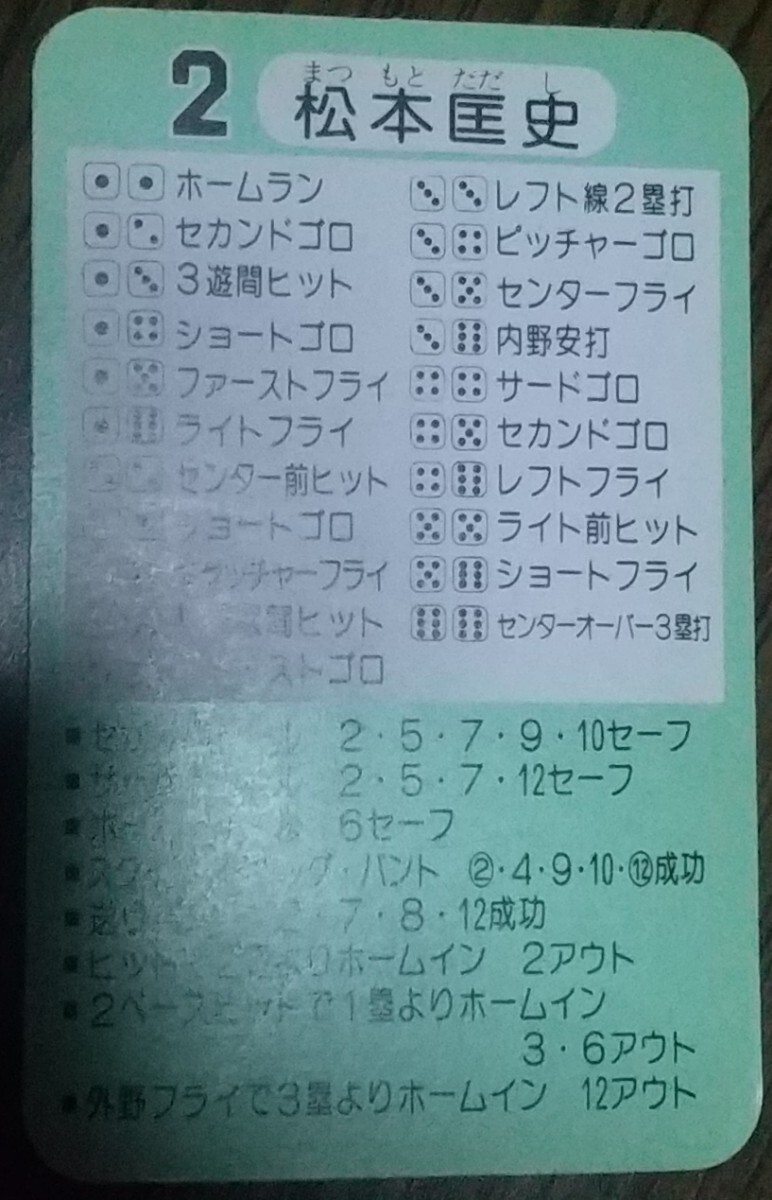 2 松本匡史
まつ もと ただ し
ホームラン
セカンドゴロ
3遊間ヒット
ショートゴロ
ファーストフライ
ライトフライ
センター前ヒット
ショートゴロ
キャッチャーフライ
間ヒット
ストゴロ
レフト線2塁打
ピッチャーゴロ
センターフライ
内野安打
サードゴロ
セカンドゴロ
レフトフライ
ライト前ヒット
ショートフライ
センターオーバー3塁打
■ 2・5・7・9・10セーフ
■ 2・5・7・12セーフ
■ 6セーフ
■ バント ②・4・9・10・⑫成功
■ 7・8・12成功
■ ヒットで2塁よりホームイン 2アウト
■ 2ベースヒットで1塁よりホームイン
3・6アウト
■ 外野フライで3塁よりホームイン 12アウト